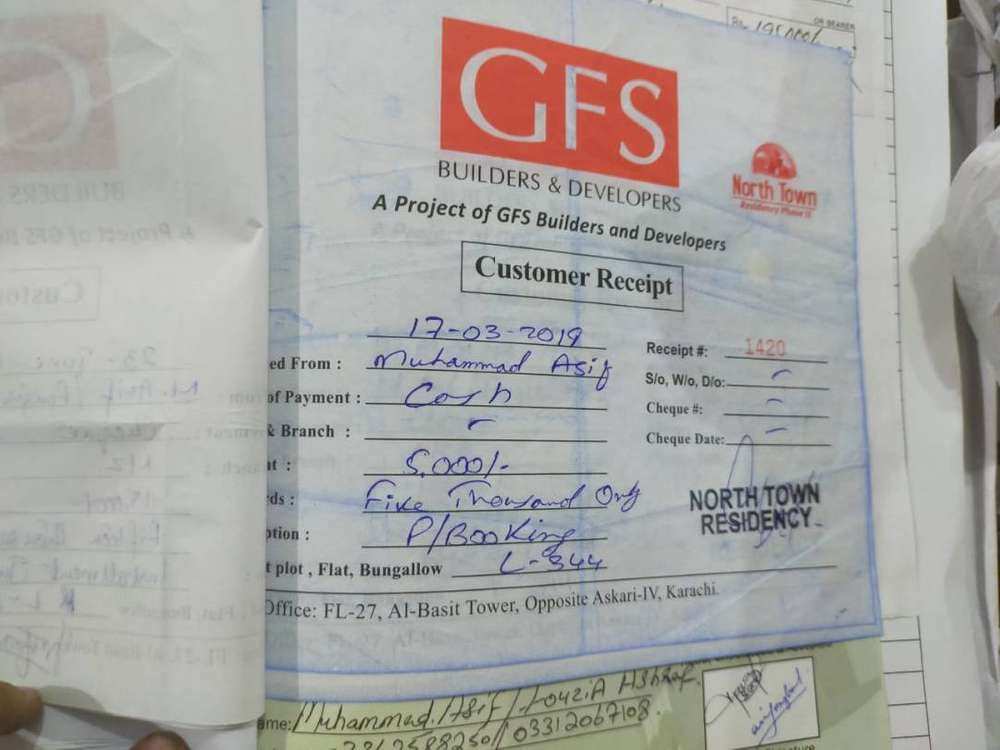 OR BEARER
Rs.
GFS
BUILDERS & DEVELOPERS
North Town
Residency Phase II
A Project of GFS Builders and Developers
Customer Receipt
17-03-2019
Receipt #: 1420
ed From : Muhammad Asif
S/o, W/o, D/o:
of Payment : Cash
Cheque #:
& Branch :
Cheque Date:
nt : 5,000/-
ds : Five Thousand Only
NORTH TOWN
RESIDENCY
ption : P/Booking
t plot , Flat, Bungallow L-344
Office: FL-27, Al-Basit Tower, Opposite Askari-IV, Karachi.
ame: Muhammad Asif / Fouzia Ashraf
03312067108.